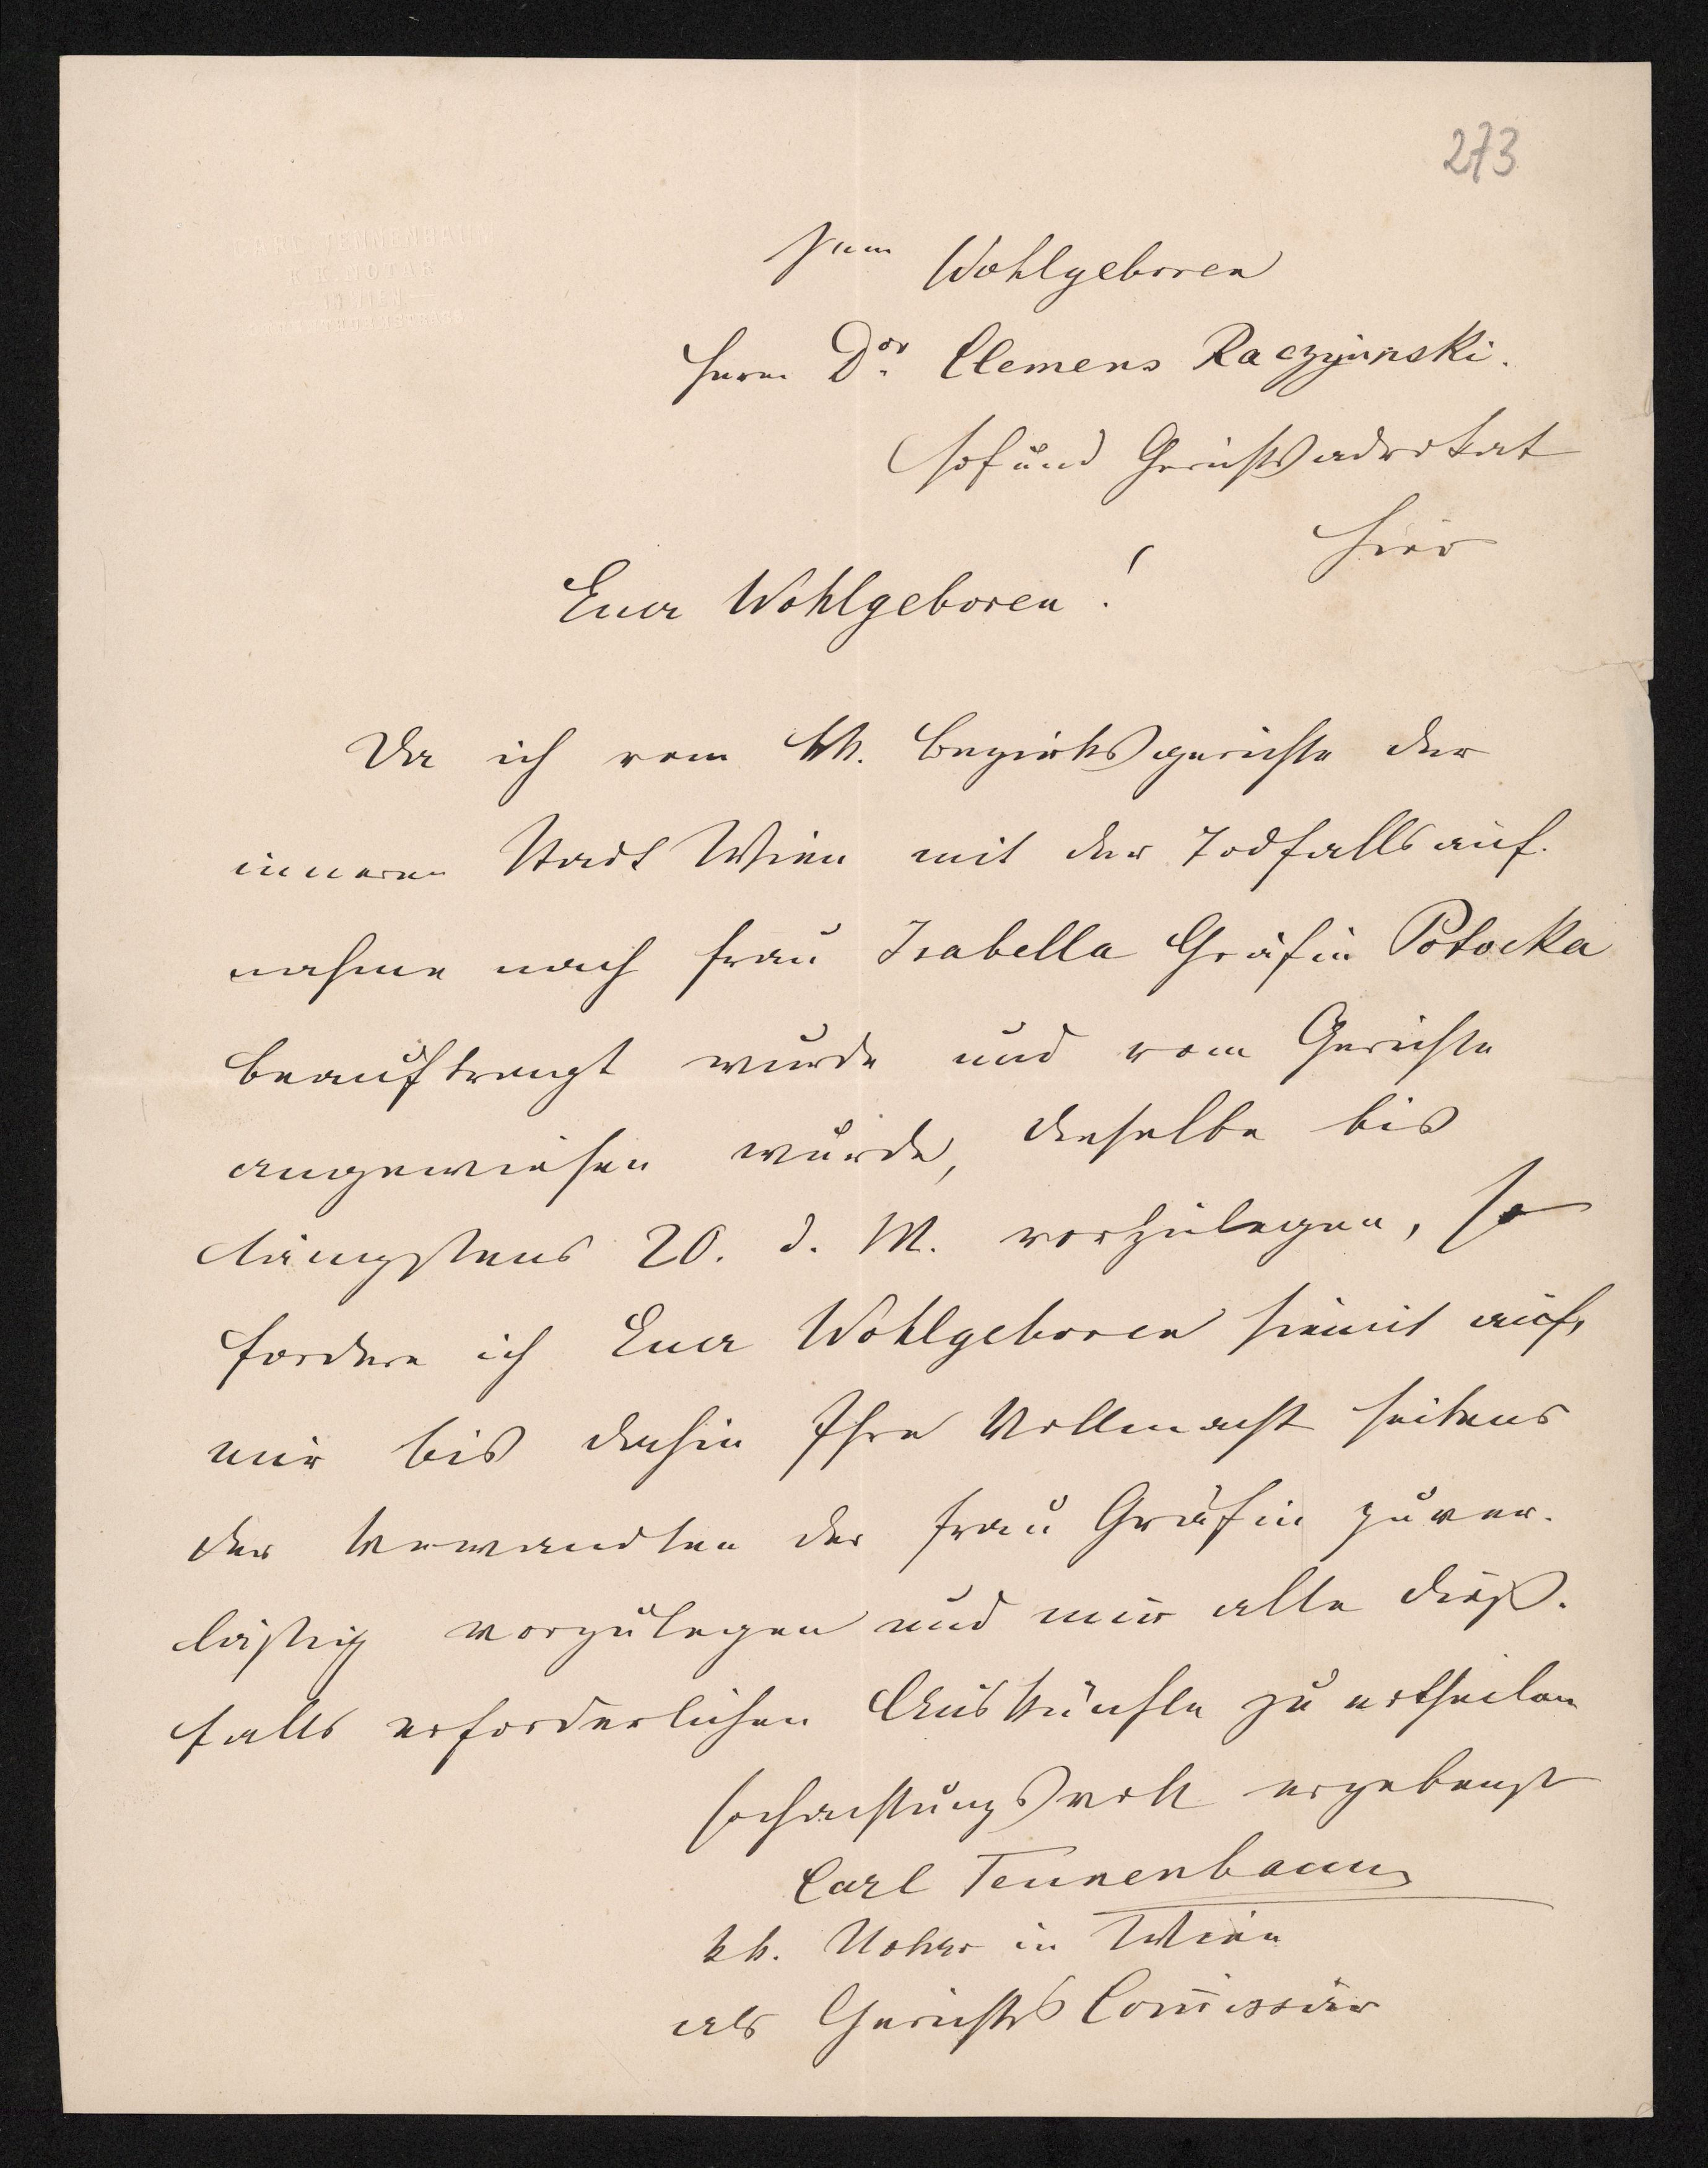 273
CARL TENNENBAUM
K. K. NOTAR
IN WIEN
Wohlgeboren
Herrn Dor. Clemens Raczyński.
Hof und Gerichtsadvokat
hier
Euer Wohlgeboren!
Da ich vom kk. Bezirksgerichte der
inneren Stadt Wien mit der Todfallsauf-
nahme nach Frau Isabella Gräfin Potocka
beauftragt wurde und vom Gerichte
angewiesen wurde, dieselbe bis
längstens 20. d. M. vorzulegen, so
fordere ich Euer Wohlgeboren hiemit auf,
mir bis dahin Ihre Vollmacht seitens
der Verwandten der Frau Gräfin zuver-
läßig vorzulegen und mir alle dieß-
falls erforderlichen Auskünfte zu ertheilen
hochachtungsvoll ergebenst
Carl Tennenbaum
kk. Notar in Wien
als Gerichts Com̄issär